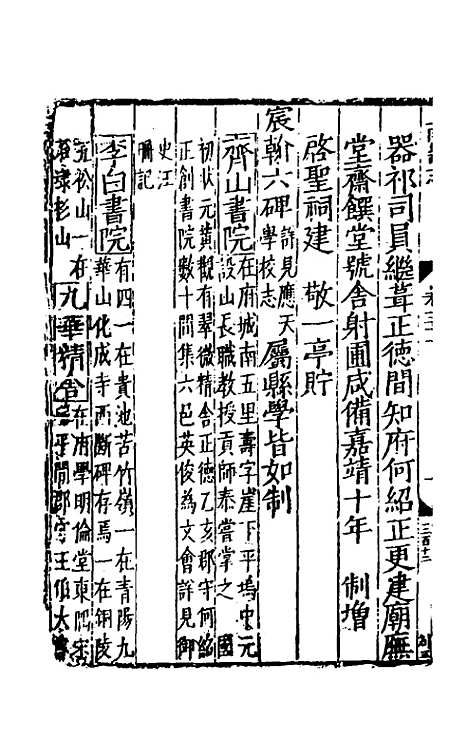 器祁司員繼葺正德間知府何紹正更建廟廡
堂齋饌堂號舍射圃咸備嘉靖十年　制增
啓聖祠建　敬一亭貯
宸翰六碑詳見應天
學校志屬縣學皆如制
齊山書院在府城南五里壽字崖下平塢中元
設山長職教授貢師泰嘗掌之　國
初狀元黃觀有翠微精舍正德乙亥郡守何紹
正創書院數十間集六邑英俊為文會詳見御
史汪
圖記
李白書院有四一在貴池苦竹嶺一在青陽九
華山化成寺西斷碑存焉一在銅陵
五松山一在
杉山九華精舍在府學明倫堂東